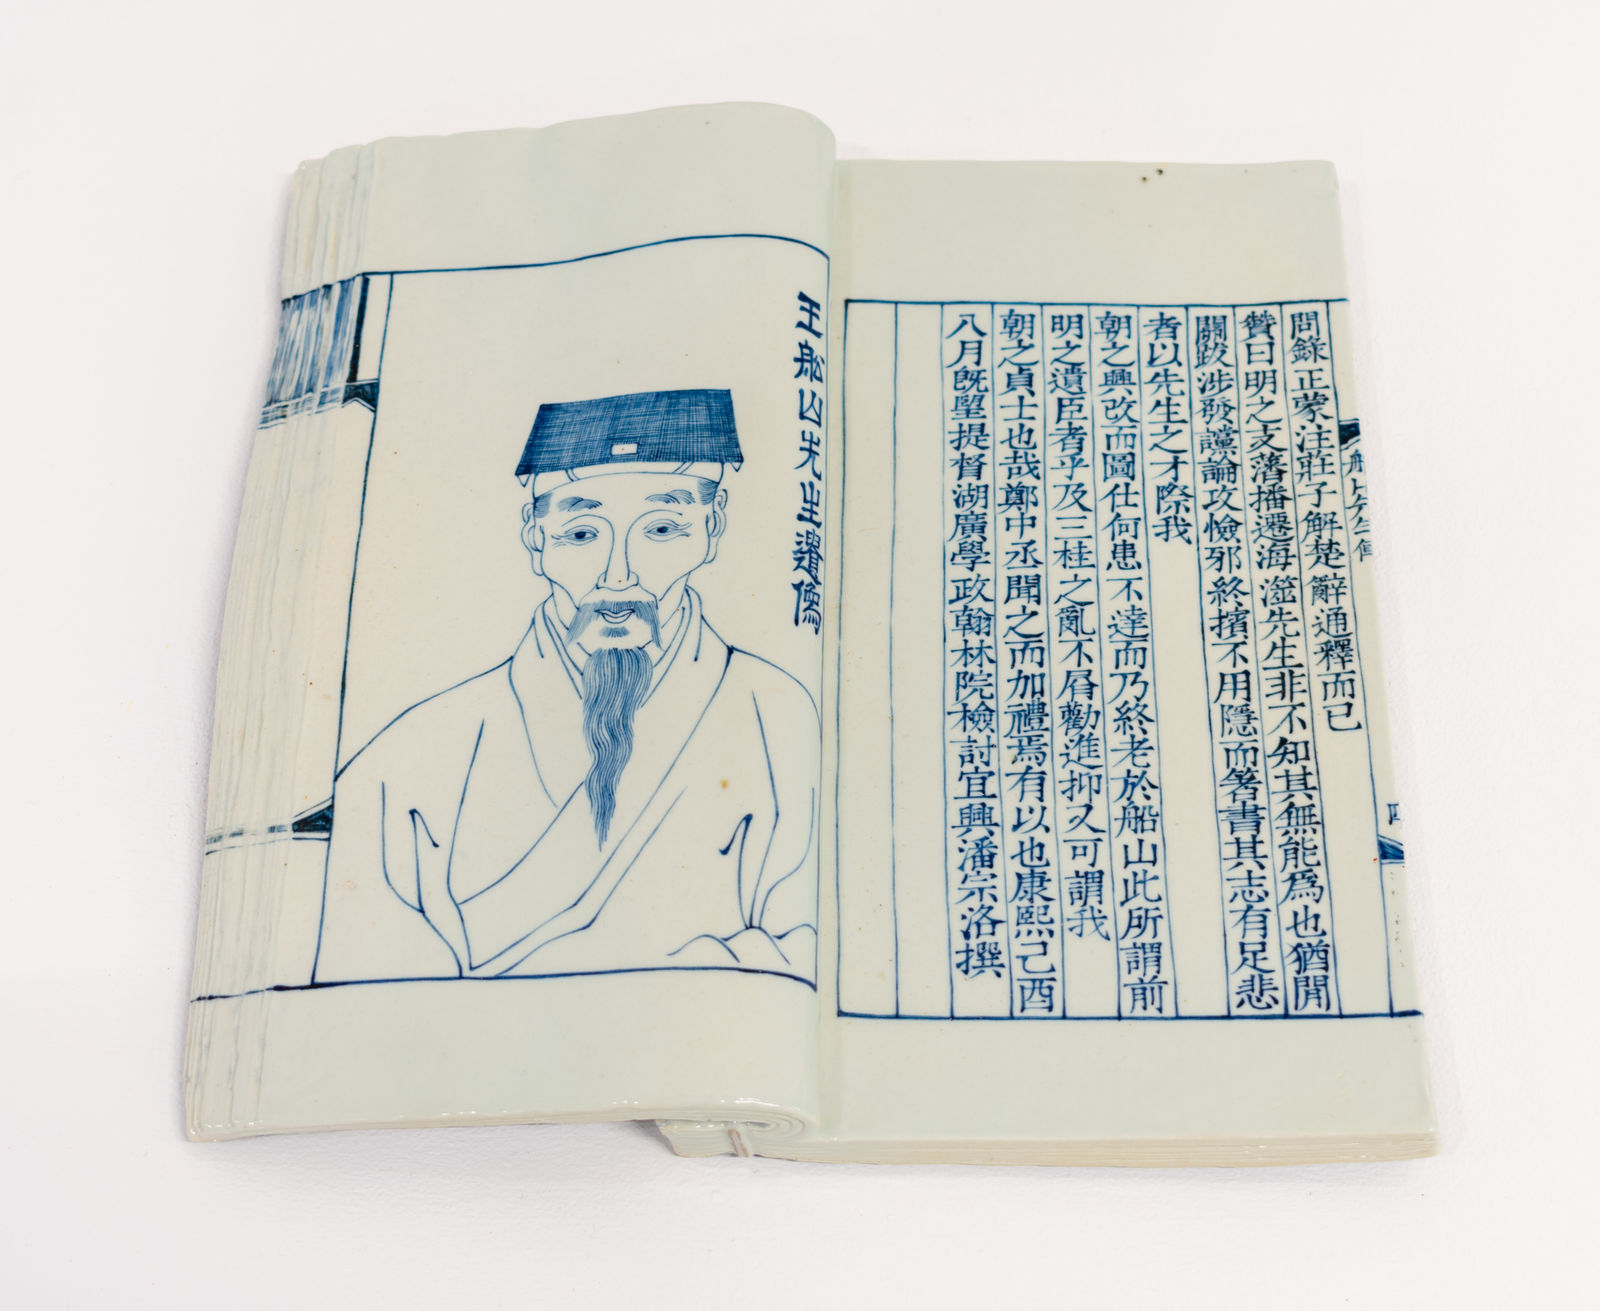 船山先生傳
四
問錄正蒙注莊子解楚辭通釋而已
贊曰明之支藩播遷海澨先生非不知其無能為也猶閒
關跋涉發讜論攻憸邪終擯不用隱而箸書其志有足悲
者以先生之才際我
朝之興改而圖仕何患不達而乃終老於船山此所謂前
明之遺臣者乎及三桂之亂不屑勸進抑又可謂我
朝之貞士也哉鄭中丞聞之而加禮焉有以也康熙己酉
八月旣望提督湖廣學政翰林院檢討宜興潘宗洛撰
王船山先生遺像